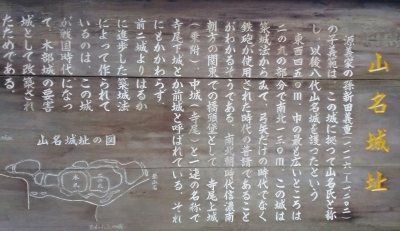 山名城址
源義家の孫新田義重(一一三五―一二〇二)
の子義範は この城に拠って山名氏と称
し、以後八代山名城を護ったという
東西四五〇m、中の最も広いところは
二の九の部分で南北一三〇m この城は
築城法からみて 弓矢だけの時代でなく
鉄砲が使用された時代の普請であること
がわかるそうである。南北朝時代信濃南
朝方の関東での橋頭堡として 寺尾上城
(乗附)、中城(寺尾)と一連の名称で
寺尾下城とか前城と呼ばれている。それ
にもかかわらず、
前二城よりはるか
に進歩した築城法
によって作られて
いるのは、この城
が戦国時代になっ
て 木部城の要害
城として改築され
たためである。
山名城址の図